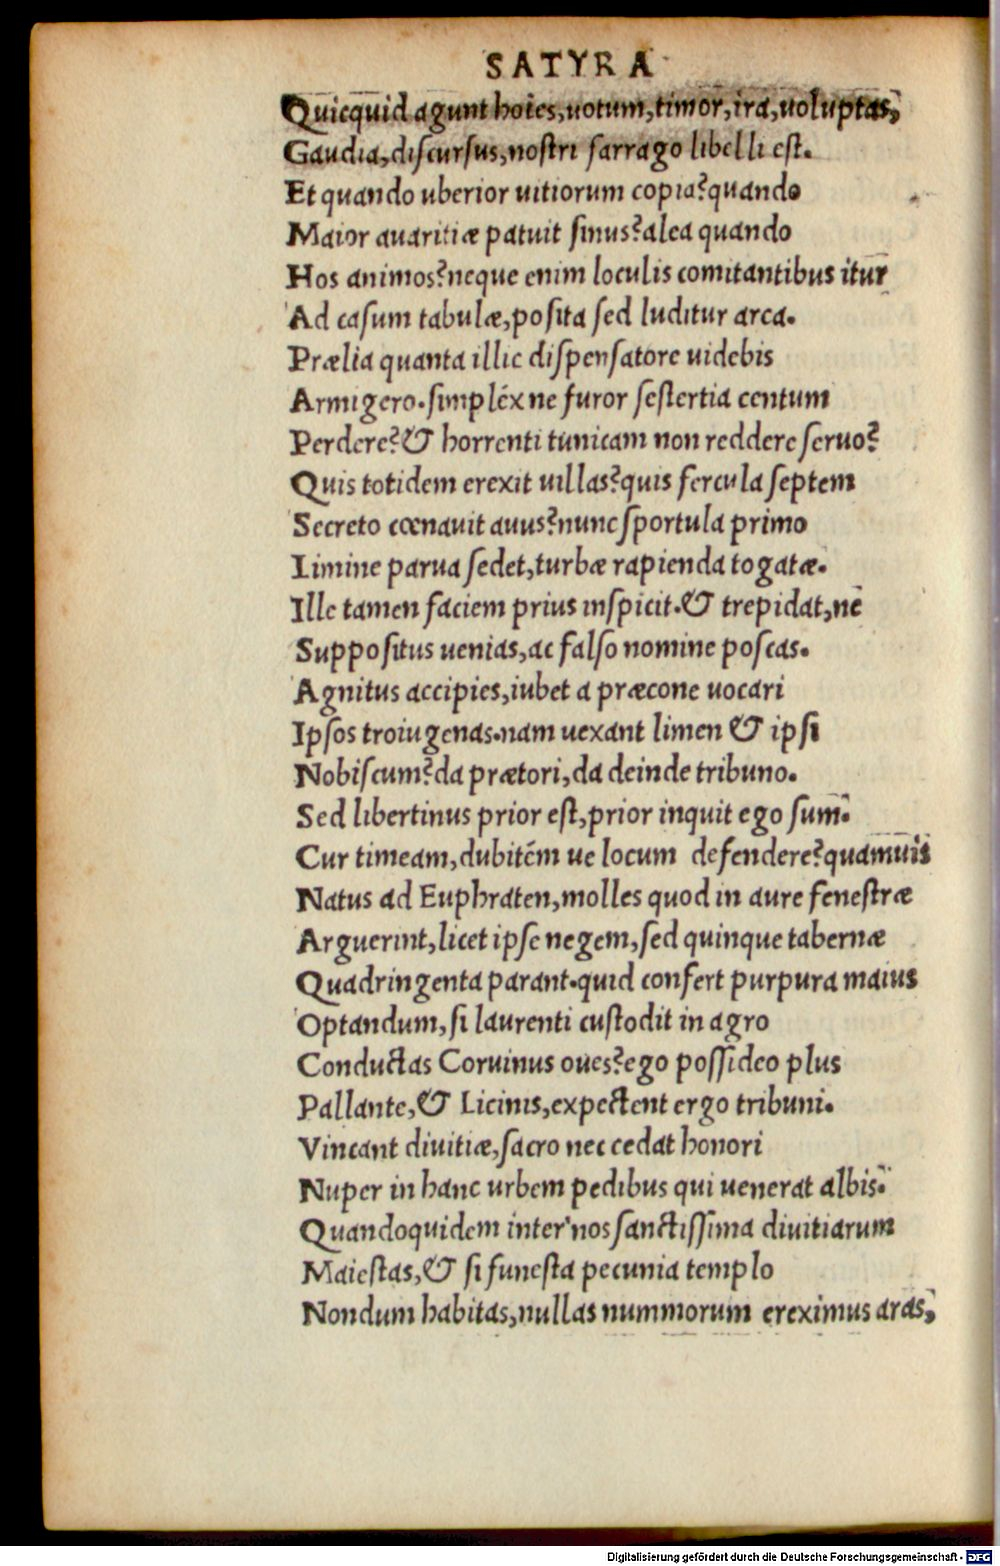 SATYRA
Quicquid agunt hoīes,uotum,timor,ira,uoluptas,
Gaudia,discursus,nostri farrago libelli est.
Et quando uberior uitiorum copia?quando
Maior auaritiæ patuit sinus?alea quando
Hos animos?neque enim loculis comitantibus itur
Ad casum tabulæ,posita sed luditur arca.
Prælia quanta illic dispensatore uidebis
Armigero.simpléx ne furor sestertia centum
Perdere?& horrenti tunicam non reddere seruo?
Quis totidem erexit uillas?quis fercula septem
Secreto cœnauit auus?nunc sportula primo
Limine parua sedet,turbæ rapienda togatæ.
Ille tamen faciem prius inspicit.& trepidat,ne
Suppositus uenias,ac falso nomine poscas.
Agnitus accipies,iubet a præcone uocari
Ipsos troiugenas.nam uexant limen & ipsi
Nobiscum?da prætori,da deinde tribuno.
Sed libertinus prior est,prior inquit ego sum.
Cur timeam,dubitém ue locum defendere?quamuis
Natus ad Euphraten,molles quod in aure fenestræ
Arguerint,licet ipse negem,sed quinque tabernæ
Quadringenta parant.quid confert purpura maius
Optandum,si laurenti custodit in agro
Conductas Coruinus oues?ego possideo plus
Pallante,& Licinis,expectent ergo tribuni.
Vincant diuitiæ,sacro nec cedat honori
Nuper in hanc urbem pedibus qui uenerat albis.
Quandoquidem inter nos sanctissima diuitiarum
Maiestas,& si funesta pecunia templo
Nondum habitas,nullas nummorum ereximus aras,
Digitalisierung gefördert durch die Deutsche Forschungsgemeinschaft - DFG